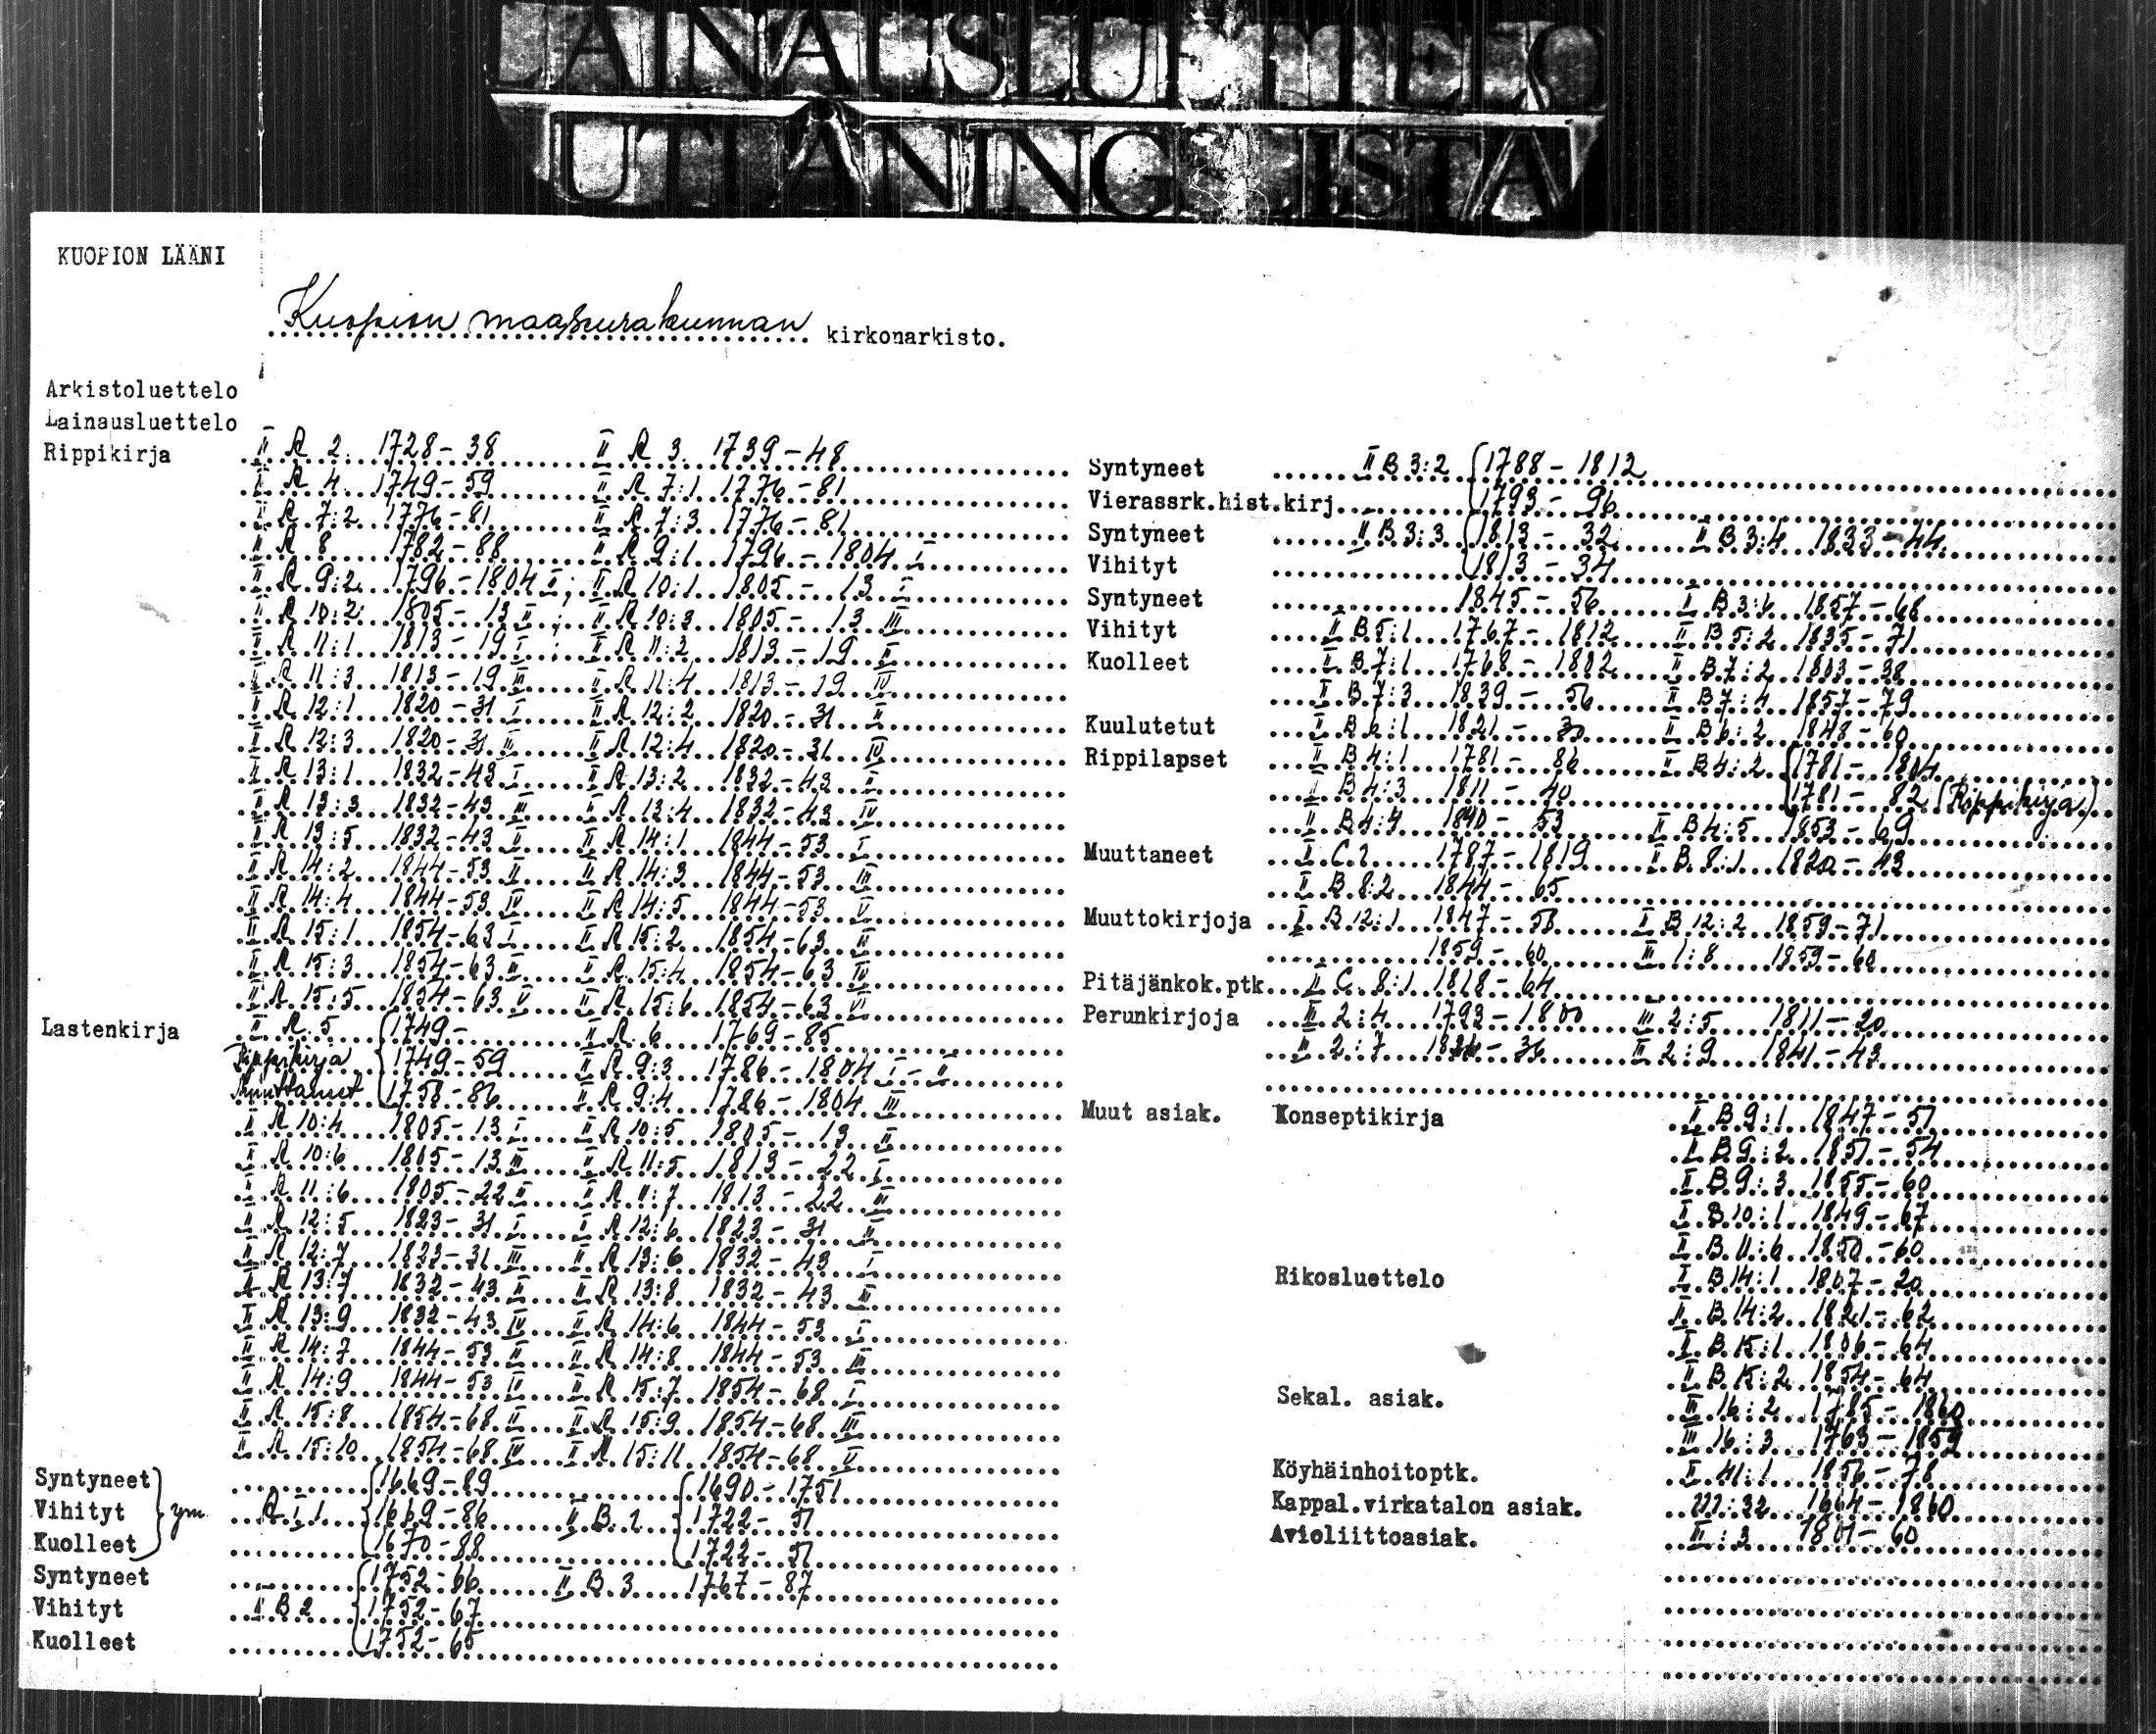 LAINAUSLUETTELO
UTLÅNINGSLISTA
KUOPION LÄÄNI
Kuopion maaseurakunnan kirkonarkisto.
Arkistoluettelo
Lainausluettelo
Rippikirja II A 2 1728-38 II A 3 1739-48
II A 4 1749-59 II A 7:1 1776-81
II A 7:2 1776-81 II A 7:3 1776-81
II A 8 1782-88 II A 9:1 1796-1804 I
II A 9:2 1796-1804 II; II A 10:1 1805-13 I
II A 10:2 1805-13 II; II A 10:3 1805-13 III
II A 11:1 1813-19 I; II A 11:2 1813-19 II
II A 11:3 1813-19 III II A 11:4 1813-19 IV
II A 12:1 1820-31 I II A 12:2 1820-31 II
II A 12:3 1820-31 III II A 12:4 1820-31 IV
II A 13:1 1832-43 I II A 13:2 1832-43 II
II A 13:3 1832-43 III II A 13:4 1832-43 IV
II A 13:5 1832-43 V II A 14:1 1844-53 I
II A 14:2 1844-53 II II A 14:3 1844-53 III
II A 14:4 1844-53 IV II A 14:5 1844-53 V
II A 15:1 1854-63 I II A 15:2 1854-63 II
II A 15:3 1854-63 III II A 15:4 1854-63 IV
II A 15:5 1854-63 V II A 15:6 1854-63 VI
Lastenkirja II A 5 1749- II A 6 1769-85
Rippikirja 1749-59 II A 9:3 1786-1804 I-II
Muuttaneet 1758-86 II A 9:4 1786-1804 III
II A 10:4 1805-13 I II A 10:5 1805-13 II
II A 10:6 1805-13 III II A 11:5 1813-22 I
II A 11:6 1805-22 II II A 11:7 1813-22 III
II A 12:5 1823-31 I II A 12:6 1823-31 II
II A 12:7 1823-31 III II A 13:6 1832-43 I
II A 13:7 1832-43 II II A 13:8 1832-43 III
II A 13:9 1832-43 IV II A 14:6 1844-53 I
II A 14:7 1844-53 II II A 14:8 1844-53 III
II A 14:9 1844-53 IV II A 15:7 1854-68 I
II A 15:8 1854-68 II II A 15:9 1854-68 III
II A 15:10 1854-68 IV II A 15:11 1854-68 V
Syntyneet 1669-89 1690-1751
Vihityt ym A I 1 1669-86 II B 1 1722-51
Kuolleet 1670-88 1722-51
Syntyneet 1752-66 II B 3 1767-87
Vihityt II B 2 1752-67
Kuolleet 1752-65
Syntyneet II B 3:2 1788-1812
Vierassrk.hist.kirj 1793-96
Syntyneet II B 3:3 1813-32 II B 3:4 1833-44
Vihityt 1813-34
Syntyneet 1845-56 II B 3:6 1857-68
Vihityt II B 5:1 1767-1812 II B 5:2 1835-71
Kuolleet II B 7:1 1768-1802 II B 7:2 1803-38
II B 7:3 1839-56 II B 7:4 1857-79
Kuulutetut II B 6:1 1821-30 II B 6:2 1848-60
Rippilapset II B 4:1 1781-86 II B 4:2 1781-1804
II B 4:3 1811-40 1781-82 (Rippikirja)
II B 4:4 1840-53 II B 4:5 1853-69
Muuttaneet II C 1 1787-1819 II B 8:1 1820-43
II B 8:2 1844-65
Muuttokirjoja II B 12:1 1847-58 II B 12:2 1859-71
1859-60 III 1:8 1859-60
Pitäjänkok.ptk II C 8:1 1818-64
Perunkirjoja III 2:4 1793-1800 III 2:5 1811-20
III 2:7 III 2:9 1841-43
Muut asiak. Konseptikirja II B 9:1 1847-51
II B 9:2 1851-54
II B 9:3 1855-60
II B 10:1 1849-67
II B 11:6 1850-60
Rikosluettelo II B 14:1 1807-20
II B 14:2 1821-62
II B 15:1 1806-64
II B 15:2 1854-64
Sekal. asiak. III 16:2 1785-1860
III 16:3 1763-1859
Köyhäinhoitoptk. II 41:1 1856-78
Kappal.virkatalon asiak. III:32 1664-1860
Avioliittoasiak. III:3 1801-60